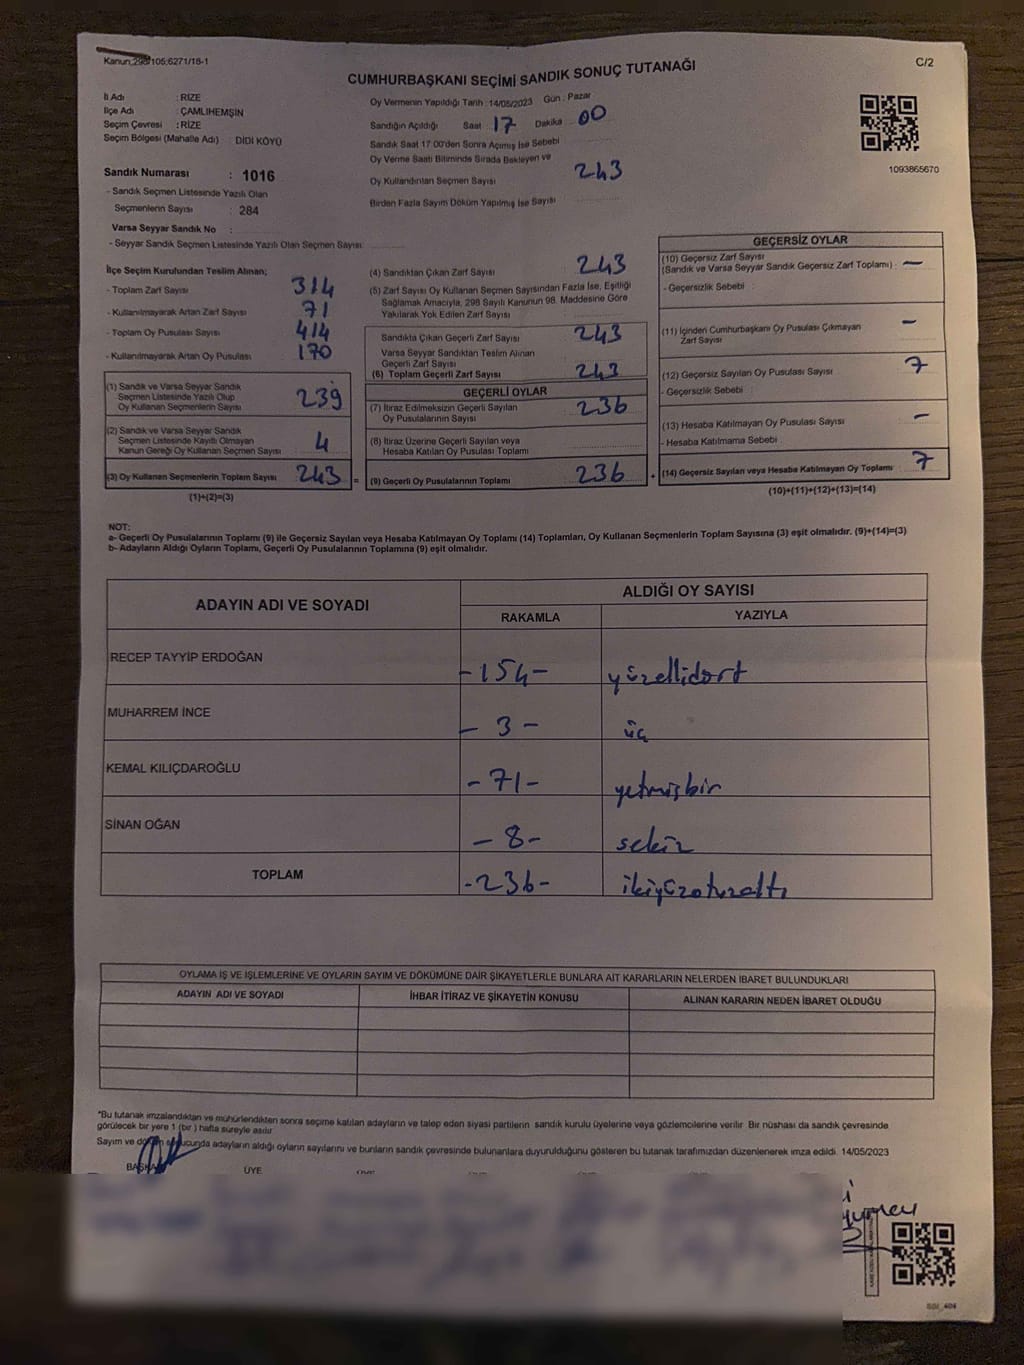 Kanun:298/105;6271/18-1
CUMHURBAŞKANI SEÇİMİ SANDIK SONUÇ TUTANAĞI
C/2
İl Adı : RİZE
İlçe Adı : ÇAMLIHEMŞİN
Seçim Çevresi : RİZE
Seçim Bölgesi (Mahalle Adı) : DİDİ KÖYÜ
Sandık Numarası : 1016
- Sandık Seçmen Listesinde Yazılı Olan
Seçmenlerin Sayısı : 284
Varsa Seyyar Sandık No :
- Seyyar Sandık Seçmen Listesinde Yazılı Olan Seçmen Sayısı:
Oy Vermenin Yapıldığı Tarih :14/05/2023 Gün : Pazar
Sandığın Açıldığı Saat : 17 Dakika : 00
Sandık Saat 17 00'den Sonra Açımış İse Sebebi
Oy Verme Saati Bitiminde Sırada Bekleyen ve
Oy Kullandırılan Seçmen Sayısı 243
Birden Fazla Sayım Döküm Yapılmış İse Sayısı
1093865670
İlçe Seçim Kurulundan Teslim Alınan;
- Toplam Zarf Sayısı : 314
- Kullanılmayarak Artan Zarf Sayısı : 71
- Toplam Oy Pusulası Sayısı : 414
- Kullanılmayarak Artan Oy Pusulası : 170
(1) Sandık ve Varsa Seyyar Sandık
Seçmen Listesinde Yazılı Olup
Oy Kullanan Seçmenlerin Sayısı : 239
(2) Sandık ve Varsa Seyyar Sandık
Seçmen Listesinde Kayıtlı Olmayan
Kanun Gereği Oy Kullanan Seçmen Sayısı : 4
(3) Oy Kullanan Seçmenlerin Toplam Sayısı : 243 =
(1)+(2)=(3)
(4) Sandıktan Çıkan Zarf Sayısı : 243
(5) Zarf Sayısı Oy Kullanan Seçmen Sayısından Fazla İse, Eşitliği
Sağlamak Amacıyla, 298 Sayılı Kanunun 98. Maddesine Göre
Yakılarak Yok Edilen Zarf Sayısı :
Sandıkta Çıkan Geçerli Zarf Sayısı : 243
Varsa Seyyar Sandıktan Teslim Alınan
Geçerli Zarf Sayısı :
(6) Toplam Geçerli Zarf Sayısı : 243
GEÇERLİ OYLAR
(7) İtiraz Edilmeksizin Geçerli Sayılan : 236
Oy Pusulalarının Sayısı
(8) İtiraz Üzerine Geçerli Sayılan veya
Hesaba Katılan Oy Pusulası Toplamı :
(9) Geçerli Oy Pusulalarının Toplamı : 236 +
GEÇERSİZ OYLAR
(10) Geçersiz Zarf Sayısı
(Sandık ve Varsa Seyyar Sandık Geçersiz Zarf Toplamı) : —
- Geçersizlik Sebebi :
(11) İçinden Cumhurbaşkanı Oy Pusulası Çıkmayan : —
Zarf Sayısı
(12) Geçersiz Sayılan Oy Pusulası Sayısı : 7
- Geçersizlik Sebebi :
(13) Hesaba Katılmayan Oy Pusulası Sayısı : —
- Hesaba Katılmama Sebebi :
(14) Geçersiz Sayılan veya Hesaba Katılmayan Oy Toplamı : 7
(10)+(11)+(12)+(13)=(14)
NOT:
a- Geçerli Oy Pusulalarının Toplamı (9) ile Geçersiz Sayılan veya Hesaba Katılmayan Oy Toplamı (14) Toplamları, Oy Kullanan Seçmenlerin Toplam Sayısına (3) eşit olmalıdır. (9)+(14)=(3)
b- Adayların Aldığı Oyların Toplamı, Geçerli Oy Pusulalarının Toplamına (9) eşit olmalıdır.
ADAYIN ADI VE SOYADI
ALDIĞI OY SAYISI
RAKAMLA YAZIYLA
RECEP TAYYİP ERDOĞAN -154- yüzellidört
MUHARREM İNCE - 3 - üç
KEMAL KILIÇDAROĞLU -71- yetmişbir
SİNAN OĞAN - 8- sekiz
TOPLAM -236- ikiyüzotuzaltı
OYLAMA İŞ VE İŞLEMLERİNE VE OYLARIN SAYIM VE DÖKÜMÜNE DAİR ŞİKAYETLERLE BUNLARA AİT KARARLARIN NELERDEN İBARET BULUNDUKLARI
ADAYIN ADI VE SOYADI İHBAR İTİRAZ VE ŞİKAYETİN KONUSU ALINAN KARARIN NEDEN İBARET OLDUĞU
*Bu tutanak imzalandıktan ve mühürlendikten sonra seçime katılan adayların ve talep eden siyasi partilerin sandık kurulu üyelerine veya gözlemcilerine verilir. Bir nüshası da sandık çevresinde
görülecek bir yere 1 (bir) hafta süreyle asılır.
Sayım ve döküm sonucunda adayların aldığı oyların sayılarını ve bunların sandık çevresinde bulunanlara duyurulduğunu gösteren bu tutanak tarafımızdan düzenlenerek imza edildi. 14/05/2023
BAŞKAN ÜYE